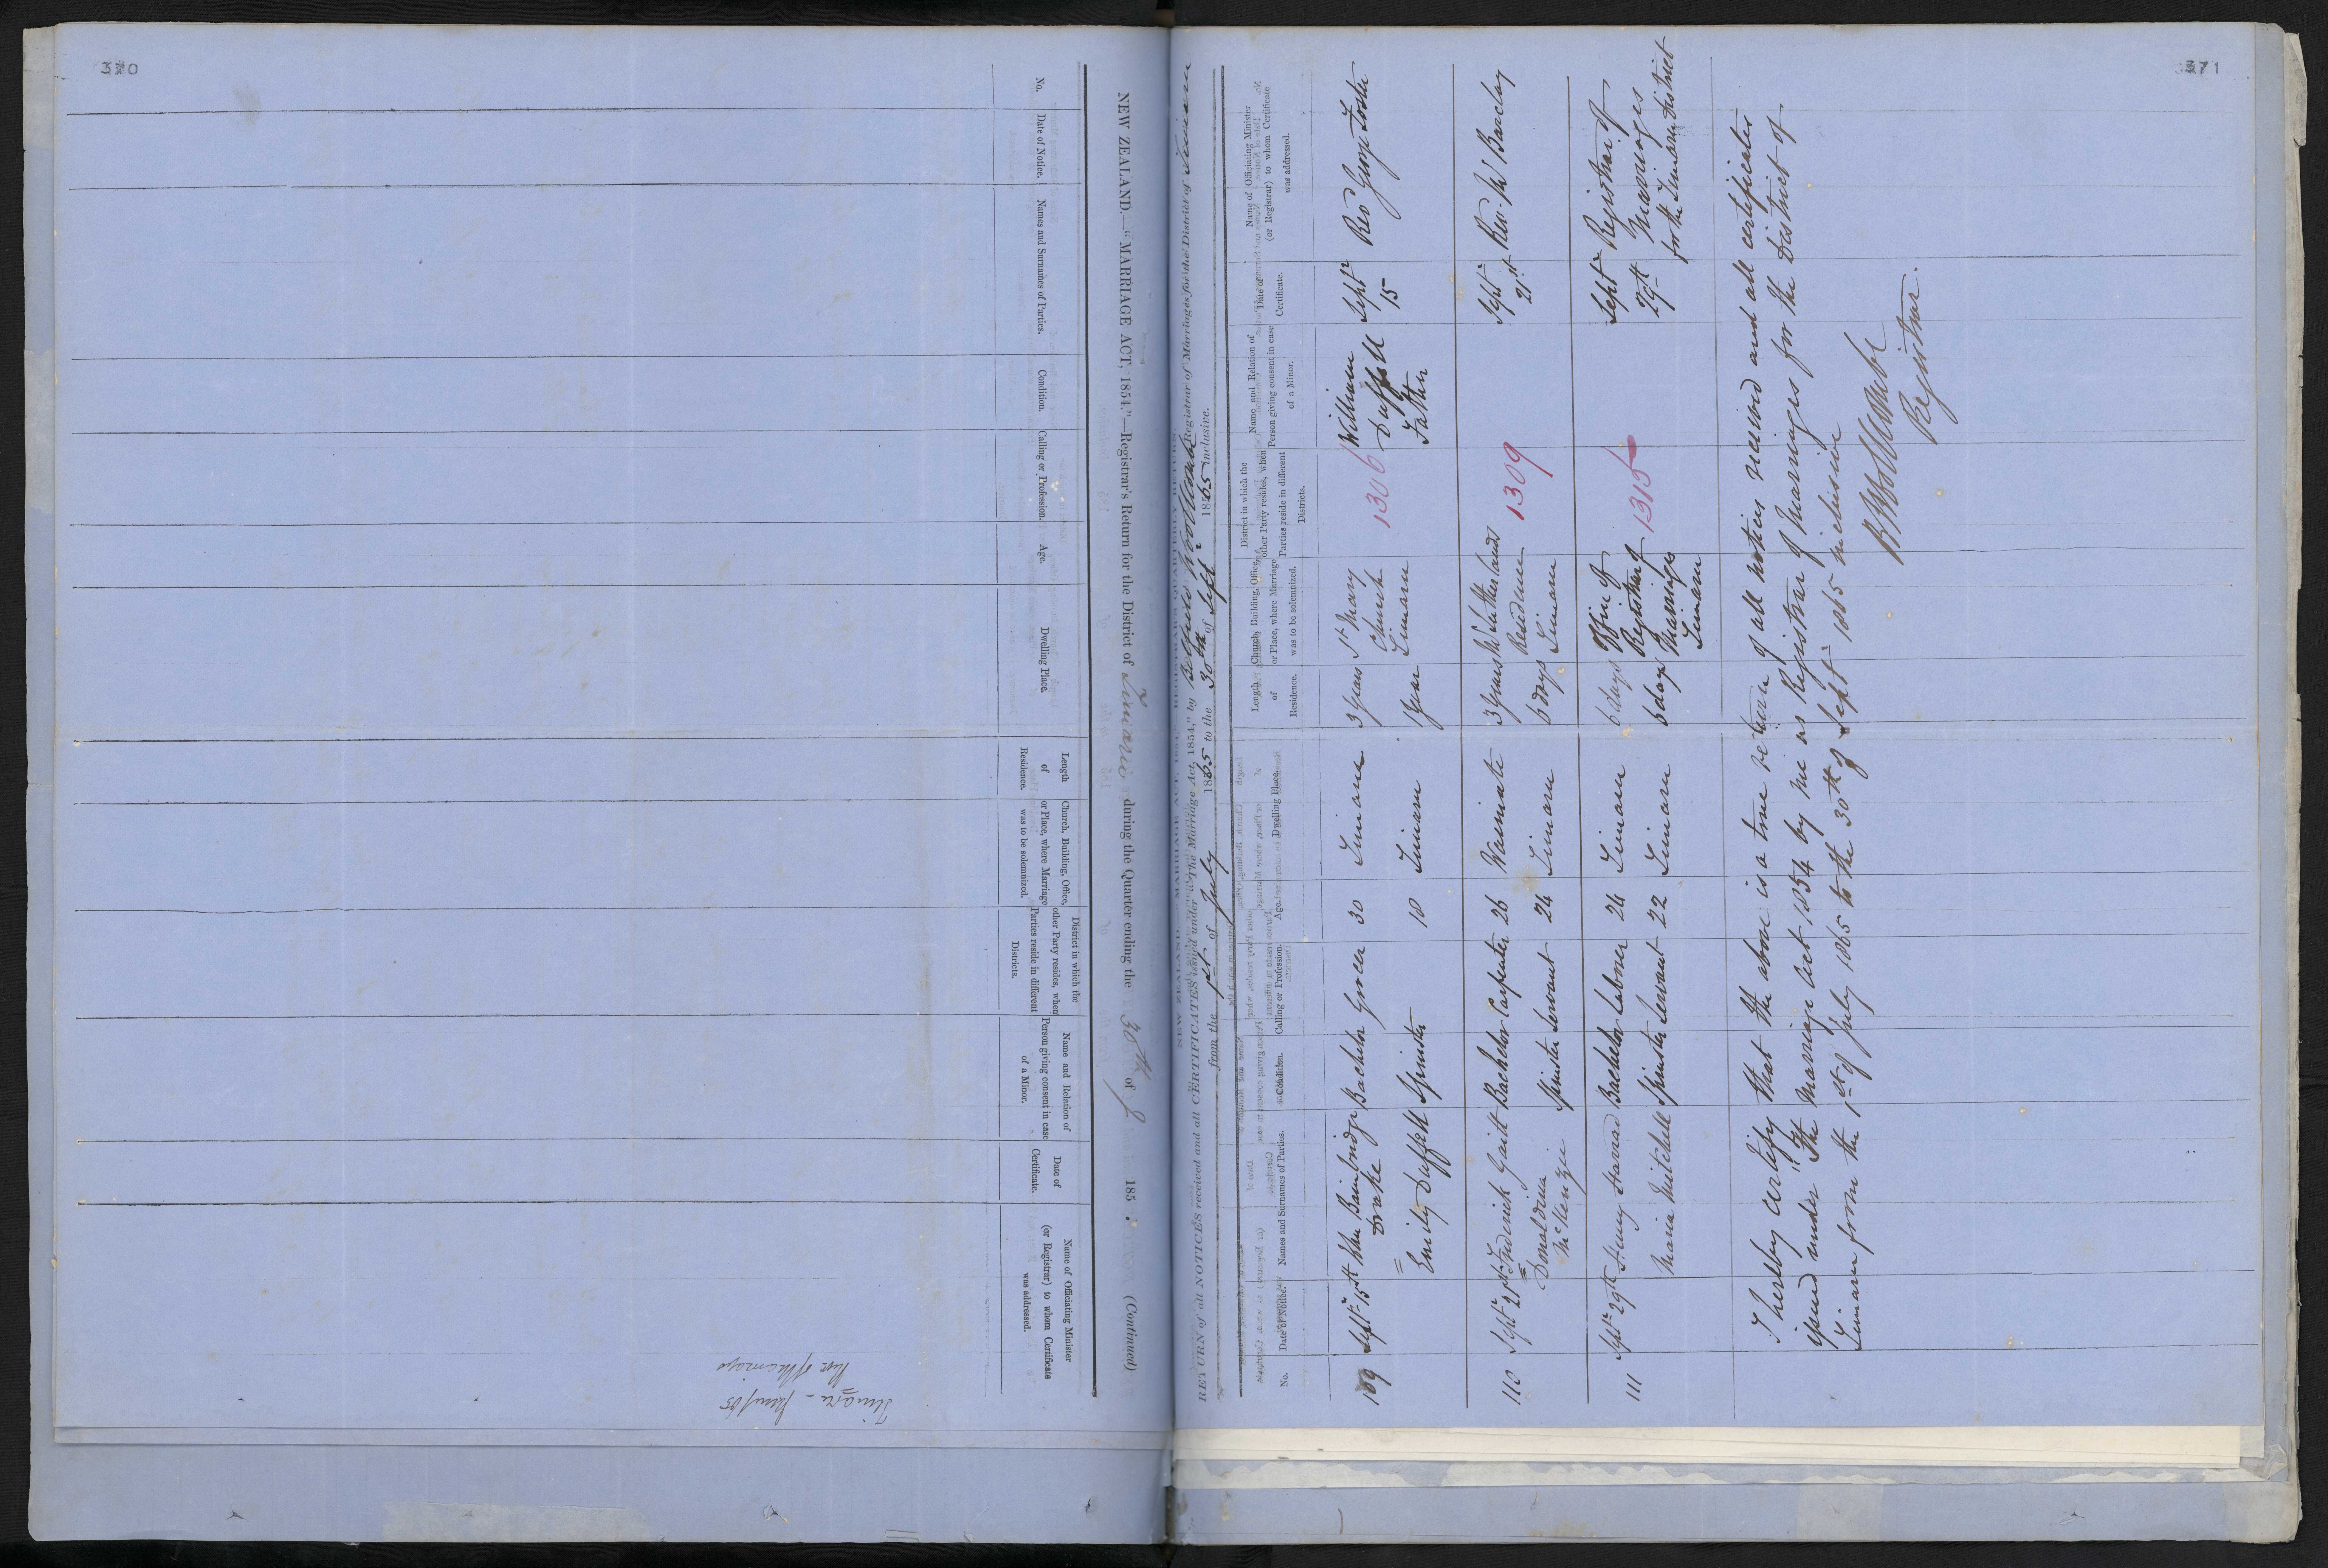 370
NEW ZEALAND.—"MARRIAGE ACT, 1854."—Registrar's Return for the District of Timaru during the Quarter ending the 30th of 185 . (Continued)
No.
Date of Notice.
Names and Surnames of Parties.
Condition.
Calling or Profession.
Age.
Dwelling Place.
Length
of
Residence.
Church, Building, Office,
or Place, where Marriage
was to be solemnized.
District in which the
other Party resides, when
Parties reside in different
Districts.
Name and Relation of
Person giving consent in case
of a Minor.
Date of
Certificate.
Name of Officiating Minister
(or Registrar) to whom Certificate
was addressed.
371
RETURN of all NOTICES received and all CERTIFICATES issued under "The Marriage Act, 1854," by Belfield Woollcombe Registrar of Marriages for the District of Timaru
from the 1st of July 1865 to the 30th of Septr 1865 inclusive.
No.
Date of Notice.
Names and Surnames of Parties.
Condition.
Calling or Profession.
Age.
Dwelling Place.
Length
of
Residence.
Church, Building, Office,
or Place, where Marriage
was to be solemnized.
District in which the
other Party resides, when
Parties reside in different
Districts.
Name and Relation of
Person giving consent in case
of a Minor.
Date of
Certificate.
Name of Officiating Minister
(or Registrar) to whom Certificate
was addressed.
109 Septr 15th John Bainbridge Bachelor Grocer 30 Timaru 3 Years St Mary William Septr Rev George Foster
Drake Church 1306 Duffell 15
= Emily Duffell Spinster 18 Timaru 1 Year Timaru Father
110 Septr 21st Frederick Gaitt Bachelor Carpenter 26 Waimate 3 Years Mr Sutherlands 1309 Septr Rev Barclay
= Donaldina Residence 21st
McKenzie Spinster Servant 24 Timaru 6 days Timaru
111 Septr 29th Henry Bachelor Labourer 24 Timaru 6 days Office of 1315 Septr Registrar of
Registrar of 29th Marriages
Maria Mitchell Spinster Servant 22 Timaru 6 days Marriages for the Timaru District
Timaru
I hereby certify that the above is a true return of all notices received and all certificates
issued under "The Marriage Act 1854 by me as Registrar of Marriages for the District of
Timaru from the 1st of July 1865 to the 30th of Septr 1865 inclusive
B Woollcombe
Registrar.